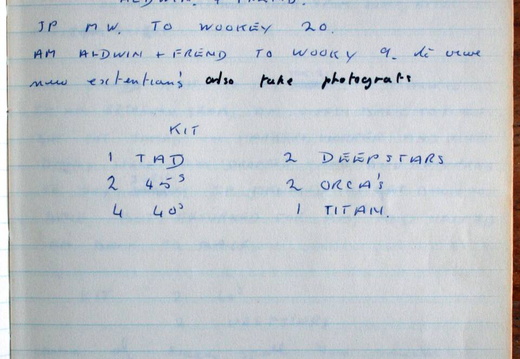 ALDWIN. + FREND.
JP MW. TO WOOKEY 20.
AM ALDWIN + FREND TO WOOKY 9. di
new extention's also take photograts
KIT
1 TAD 2 DEEPSTARS
2 45s 2 ORCA's
4 40s 1 TITAN.